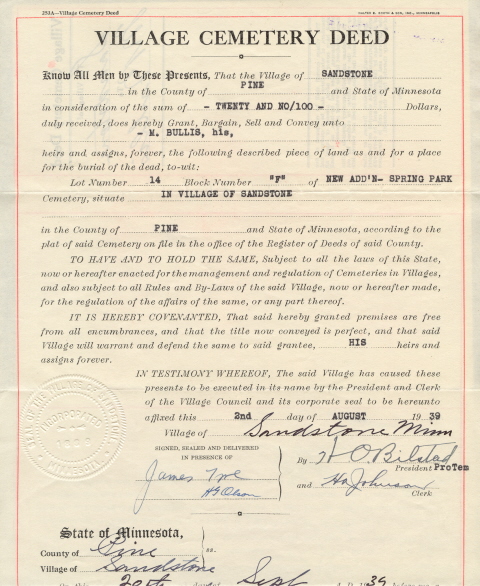 253A—Village Cemetery Deed
VILLAGE CEMETERY DEED
Know All Men by These Presents, That the Village of SANDSTONE
in the County of PINE and State of Minnesota
in consideration of the sum of - TWENTY AND NO/100 - Dollars,
duly received, does hereby Grant, Bargain, Sell and Convey unto
- M. BULLIS, his,
heirs and assigns, forever, the following described piece of land as and for a place
for the burial of the dead, to-wit:
Lot Number 14 Block Number "F" of NEW ADD'N- SPRING PARK
Cemetery, situate IN VILLAGE OF SANDSTONE
in the County of PINE and State of Minnesota, according to the
plat of said Cemetery on file in the office of the Register of Deeds of said County.
TO HAVE AND TO HOLD THE SAME, Subject to all the laws of this State,
now or hereafter enacted for the management and regulation of Cemeteries in Villages,
and also subject to all Rules and By-Laws of the said Village, now or hereafter made,
for the regulation of the affairs of the same, or any part thereof.
IT IS HEREBY COVENANTED, That said hereby granted premises are free
from all encumbrances, and that the title now conveyed is perfect, and that said
Village will warrant and defend the same to said grantee, HIS heirs and
assigns forever.
IN TESTIMONY WHEREOF, The said Village has caused these
presents to be executed in its name by the President and Clerk
of the Village Council and its corporate seal to be hereunto
affixed this 2nd day of AUGUST 1939
Village of Sandstone Minn
SIGNED, SEALED AND DELIVERED
IN PRESENCE OF
By H O Bilstad
President ProTem
James
H G Olson
and Johnson
Clerk
State of Minnesota,
County of Pine ss.
Village of Sandstone
20th day of Sept A. D. 1939